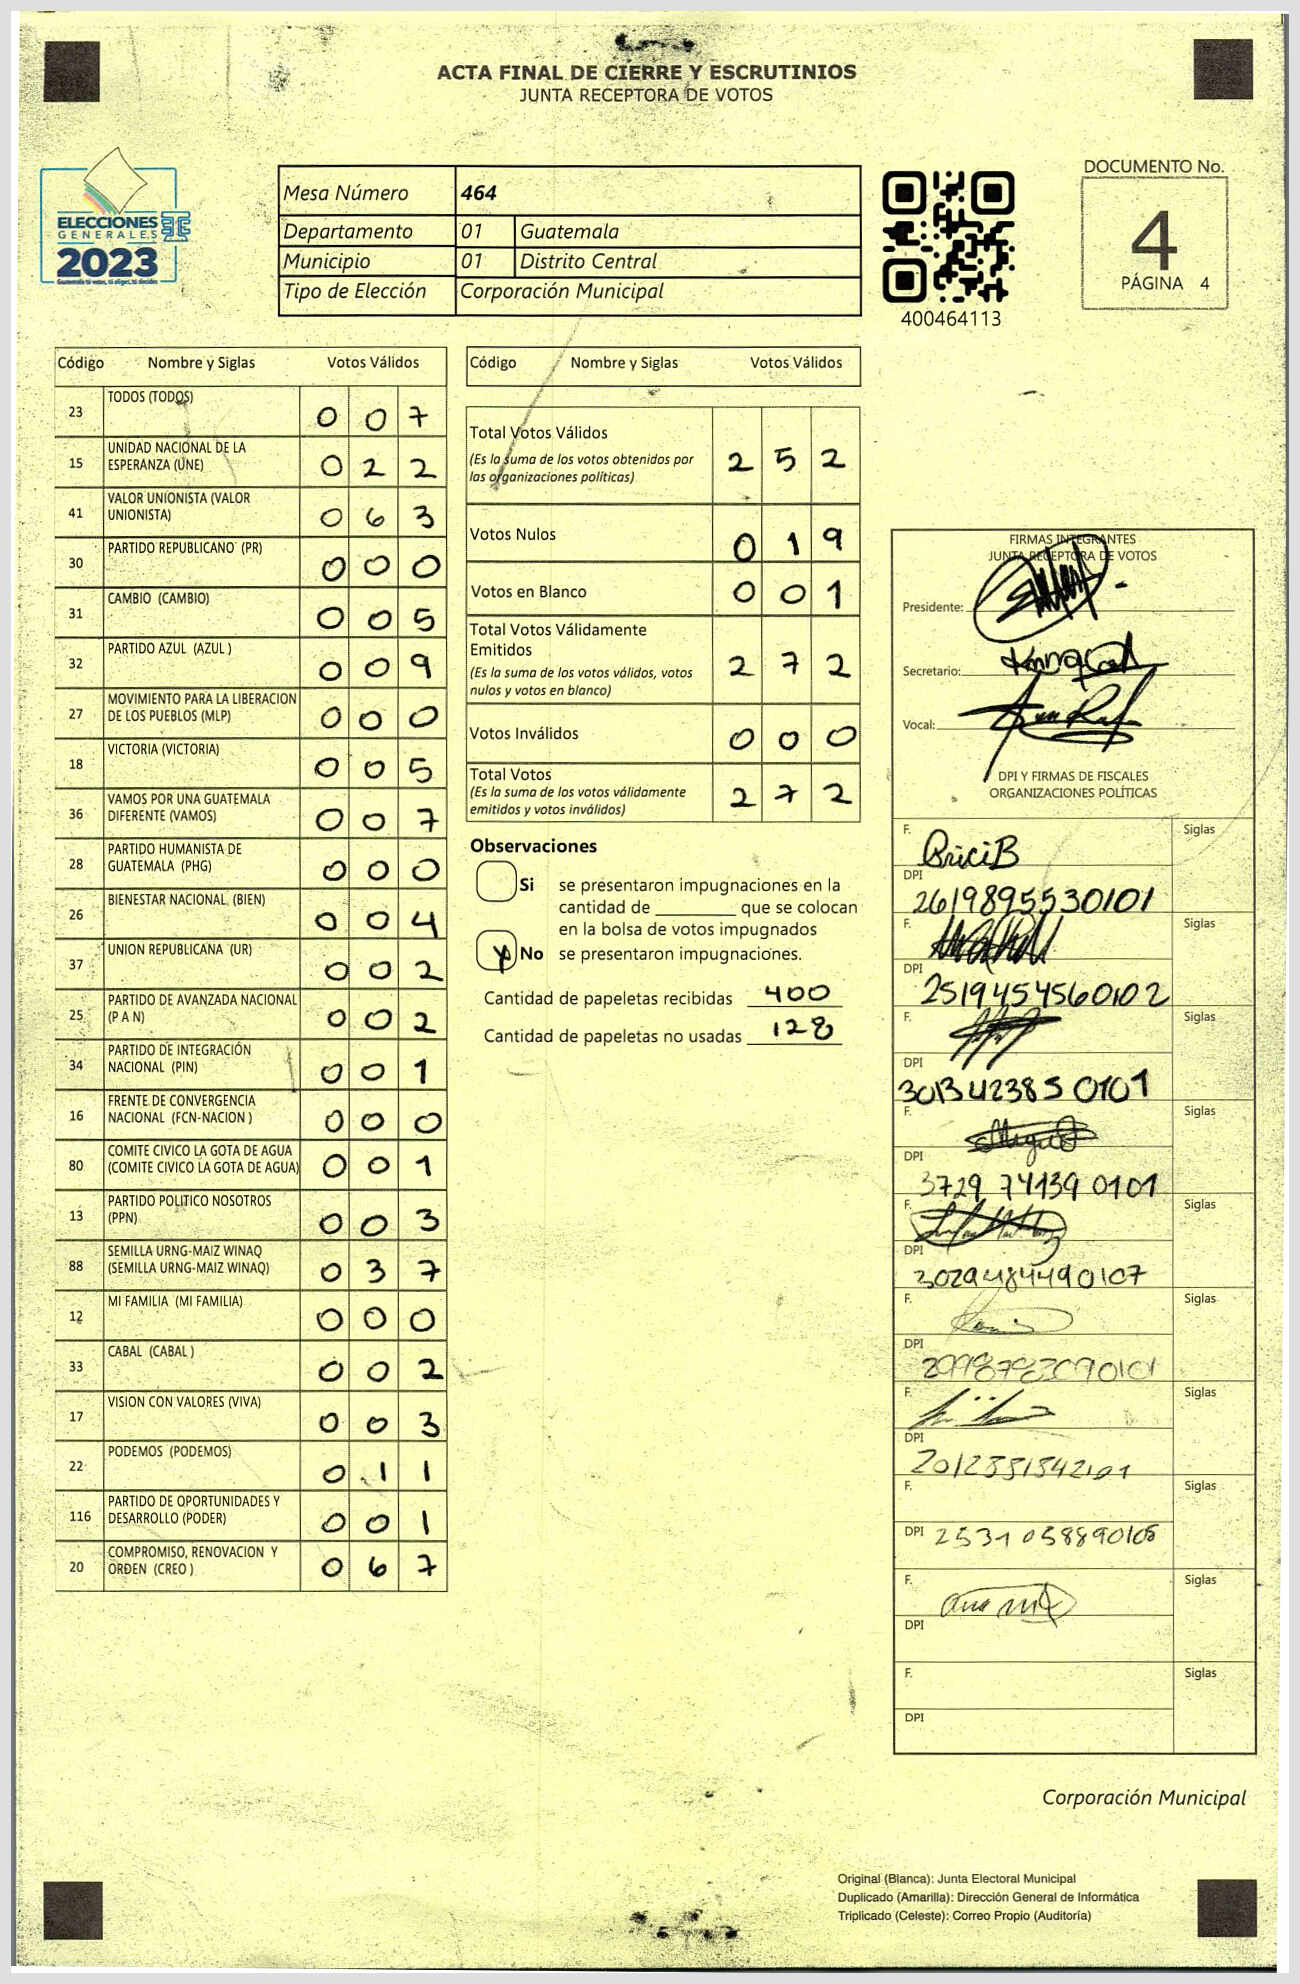 ACTA FINAL DE CIERRE Y ESCRUTINIOS
JUNTA RECEPTORA DE VOTOS
ELECCIONES
GENERALES
2023
Mesa Número 464
Departamento 01 Guatemala
Municipio 01 Distrito Central
Tipo de Elección Corporación Municipal
400464113
DOCUMENTO No.
4
PÁGINA 4
Código Nombre y Siglas Votos Válidos
23 TODOS (TODOS) 0 0 7
15 UNIDAD NACIONAL DE LA
ESPERANZA (UNE) 0 2 2
41 VALOR UNIONISTA (VALOR
UNIONISTA) 0 6 3
30 PARTIDO REPUBLICANO (PR) 0 0 0
31 CAMBIO (CAMBIO) 0 0 5
32 PARTIDO AZUL (AZUL ) 0 0 9
27 MOVIMIENTO PARA LA LIBERACION
DE LOS PUEBLOS (MLP) 0 0 0
18 VICTORIA (VICTORIA) 0 0 5
36 VAMOS POR UNA GUATEMALA
DIFERENTE (VAMOS) 0 0 7
28 PARTIDO HUMANISTA DE
GUATEMALA (PHG) 0 0 0
26 BIENESTAR NACIONAL (BIEN) 0 0 4
37 UNION REPUBLICANA (UR) 0 0 2
25 PARTIDO DE AVANZADA NACIONAL
(P A N) 0 0 2
34 PARTIDO DE INTEGRACIÓN
NACIONAL (PIN) 0 0 1
16 FRENTE DE CONVERGENCIA
NACIONAL (FCN-NACION ) 0 0 0
80 COMITE CIVICO LA GOTA DE AGUA
(COMITE CIVICO LA GOTA DE AGUA) 0 0 1
13 PARTIDO POLITICO NOSOTROS
(PPN) 0 0 3
88 SEMILLA URNG-MAIZ WINAQ
(SEMILLA URNG-MAIZ WINAQ) 0 3 7
12 MI FAMILIA (MI FAMILIA) 0 0 0
33 CABAL (CABAL ) 0 0 2
17 VISION CON VALORES (VIVA) 0 0 3
22 PODEMOS (PODEMOS) 0 1 1
116 PARTIDO DE OPORTUNIDADES Y
DESARROLLO (PODER) 0 0 1
20 COMPROMISO, RENOVACION Y
ORDEN (CREO ) 0 6 7
Código Nombre y Siglas Votos Válidos
Total Votos Válidos 2 5 2
(Es la suma de los votos obtenidos por
las organizaciones políticas)
Votos Nulos 0 1 9
Votos en Blanco 0 0 1
Total Votos Válidamente
Emitidos 2 7 2
(Es la suma de los votos válidos, votos
nulos y votos en blanco)
Votos Inválidos 0 0 0
Total Votos 2 7 2
(Es la suma de los votos válidamente
emitidos y votos inválidos)
Observaciones
Si se presentaron impugnaciones en la
cantidad de ________ que se colocan
en la bolsa de votos impugnados
No se presentaron impugnaciones.
Cantidad de papeletas recibidas 400
Cantidad de papeletas no usadas 128
FIRMAS INTEGRANTES
JUNTA RECEPTORA DE VOTOS
Presidente:
Secretario:
Vocal:
DPI Y FIRMAS DE FISCALES
ORGANIZACIONES POLÍTICAS
F. Siglas
DPI 2619895530101
F. Siglas
DPI 2519454560102
F. Siglas
DPI 3013423850101
F. Siglas
DPI 3729 74139 0101
F. Siglas
DPI 3029484490107
F. Siglas
DPI
F. Siglas
DPI
F. Siglas
DPI
F. Siglas
DPI
F. Siglas
DPI
Corporación Municipal
Original (Blanca): Junta Electoral Municipal
Duplicado (Amarilla): Dirección General de Informática
Triplicado (Celeste): Correo Propio (Auditoría)